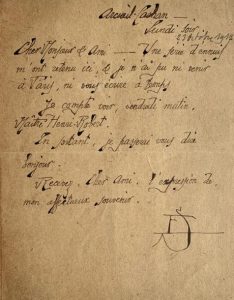 Arcueil-Cachan —
Lundi soir
23 Octobre 1912
Cher Monsieur & Ami — Une série d'ennuis
m'ont retenu ici, & je n'ai pu ni venir
à Paris, ni vous écrire à temps
Je compte voir, vendredi matin,
Maître Henri-Robert.
En sortant, je passerai vous dire
bonjour.
Recevez, Cher Ami, l'expression de
mon affectueux souvenir.